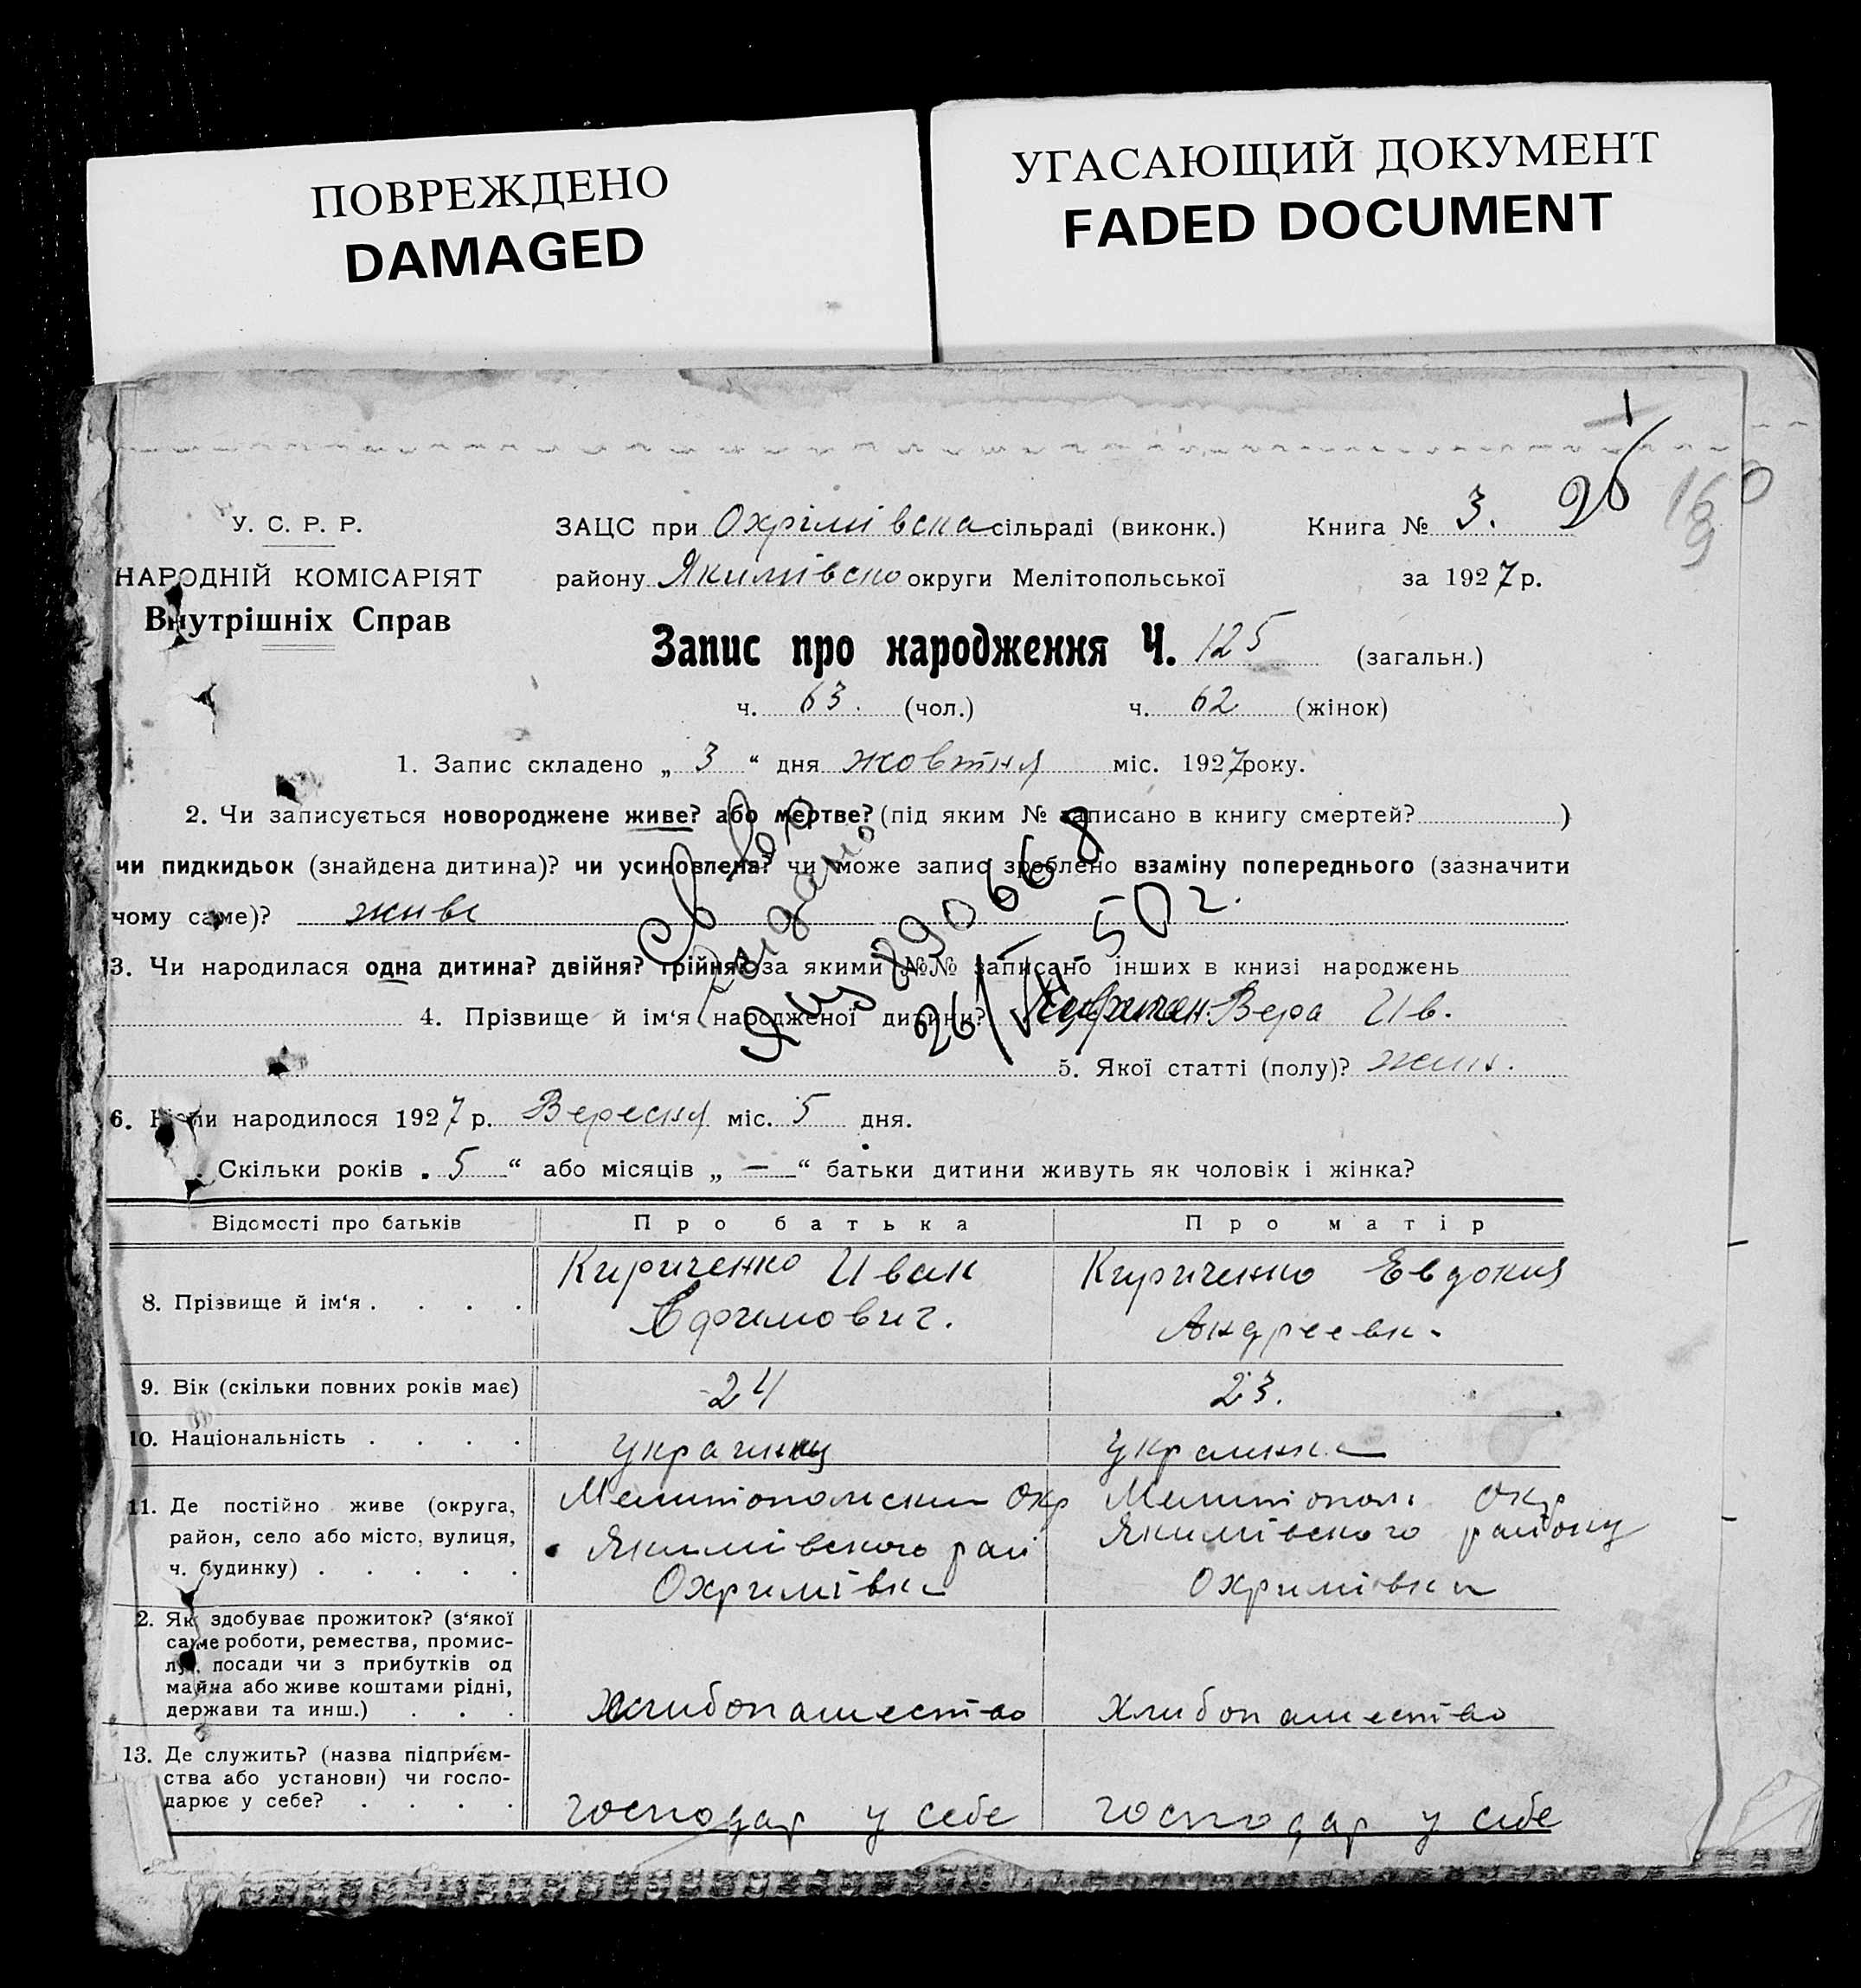 ПОВРЕЖДЕНО
DAMAGED
УГАСАЮЩИЙ ДОКУМЕНТ
FADED DOCUMENT
У. С. Р. Р.
НАРОДНІЙ КОМІСАРІЯТ
Внутрішніх Справ
ЗАЦС при Охрімівска сільраді (виконк.) Книга № 3.
району Якимівско округи Мелітопольської за 1927 р.
Запис про народження Ч. 125 (загальн.)
ч. 63. (чол.) ч. 62 (жінок)
1. Запис складено „ 3 “ дня жовтня міс. 1927 року.
2. Чи записується новороджене живе? або мертве? (під яким № записано в книгу смертей? )
чи пидкидьок (знайдена дитина)? чи усиновлена? чи може запис зроблено взаміну попереднього (зазначити
чому саме)? живе
3. Чи народилася одна дитина? двійня? трійня? за якими №№ записано інших в книзі народжень
4. Прізвище й ім‘я народженої дитини? Вера Ив.
5. Якої статті (полу)? жин.
6. Коли народилося 1927 р. Вересня міс. 5 дня.
Скільки років „ 5 “ або місяців „ — “ батьки дитини живуть як чоловік і жінка?
Св во
видано
ЯИ 290668
26/VII-50 г.
Відомості про батьків Про батька Про матір
8. Прізвище й ім‘я . . . . Кириченко Иван Кириченко Евдокия
Ефимович. Андреевн.
9. Вік (скільки повних років має) 24 23.
10. Національність . . . . украинец украинка
11. Де постійно живе (округа, район, село або місто, вулиця, ч. будинку) . . . . . Мелитопольский окр Мелитопол. окр
Якимівского рай Якимівского району
Охримівка Охримівка
2. Як здобуває прожиток? (з‘якої
саме роботи, ремества, промис-
лу, посади чи з прибутків од
майна або живе коштами рідні,
держави та инш.) . . . Хлибопашество Хлибопашество
13. Де служить? (назва підприєм-
ства або установи) чи госпо-
дарює у себе? . . . . господар у себе господар у себе